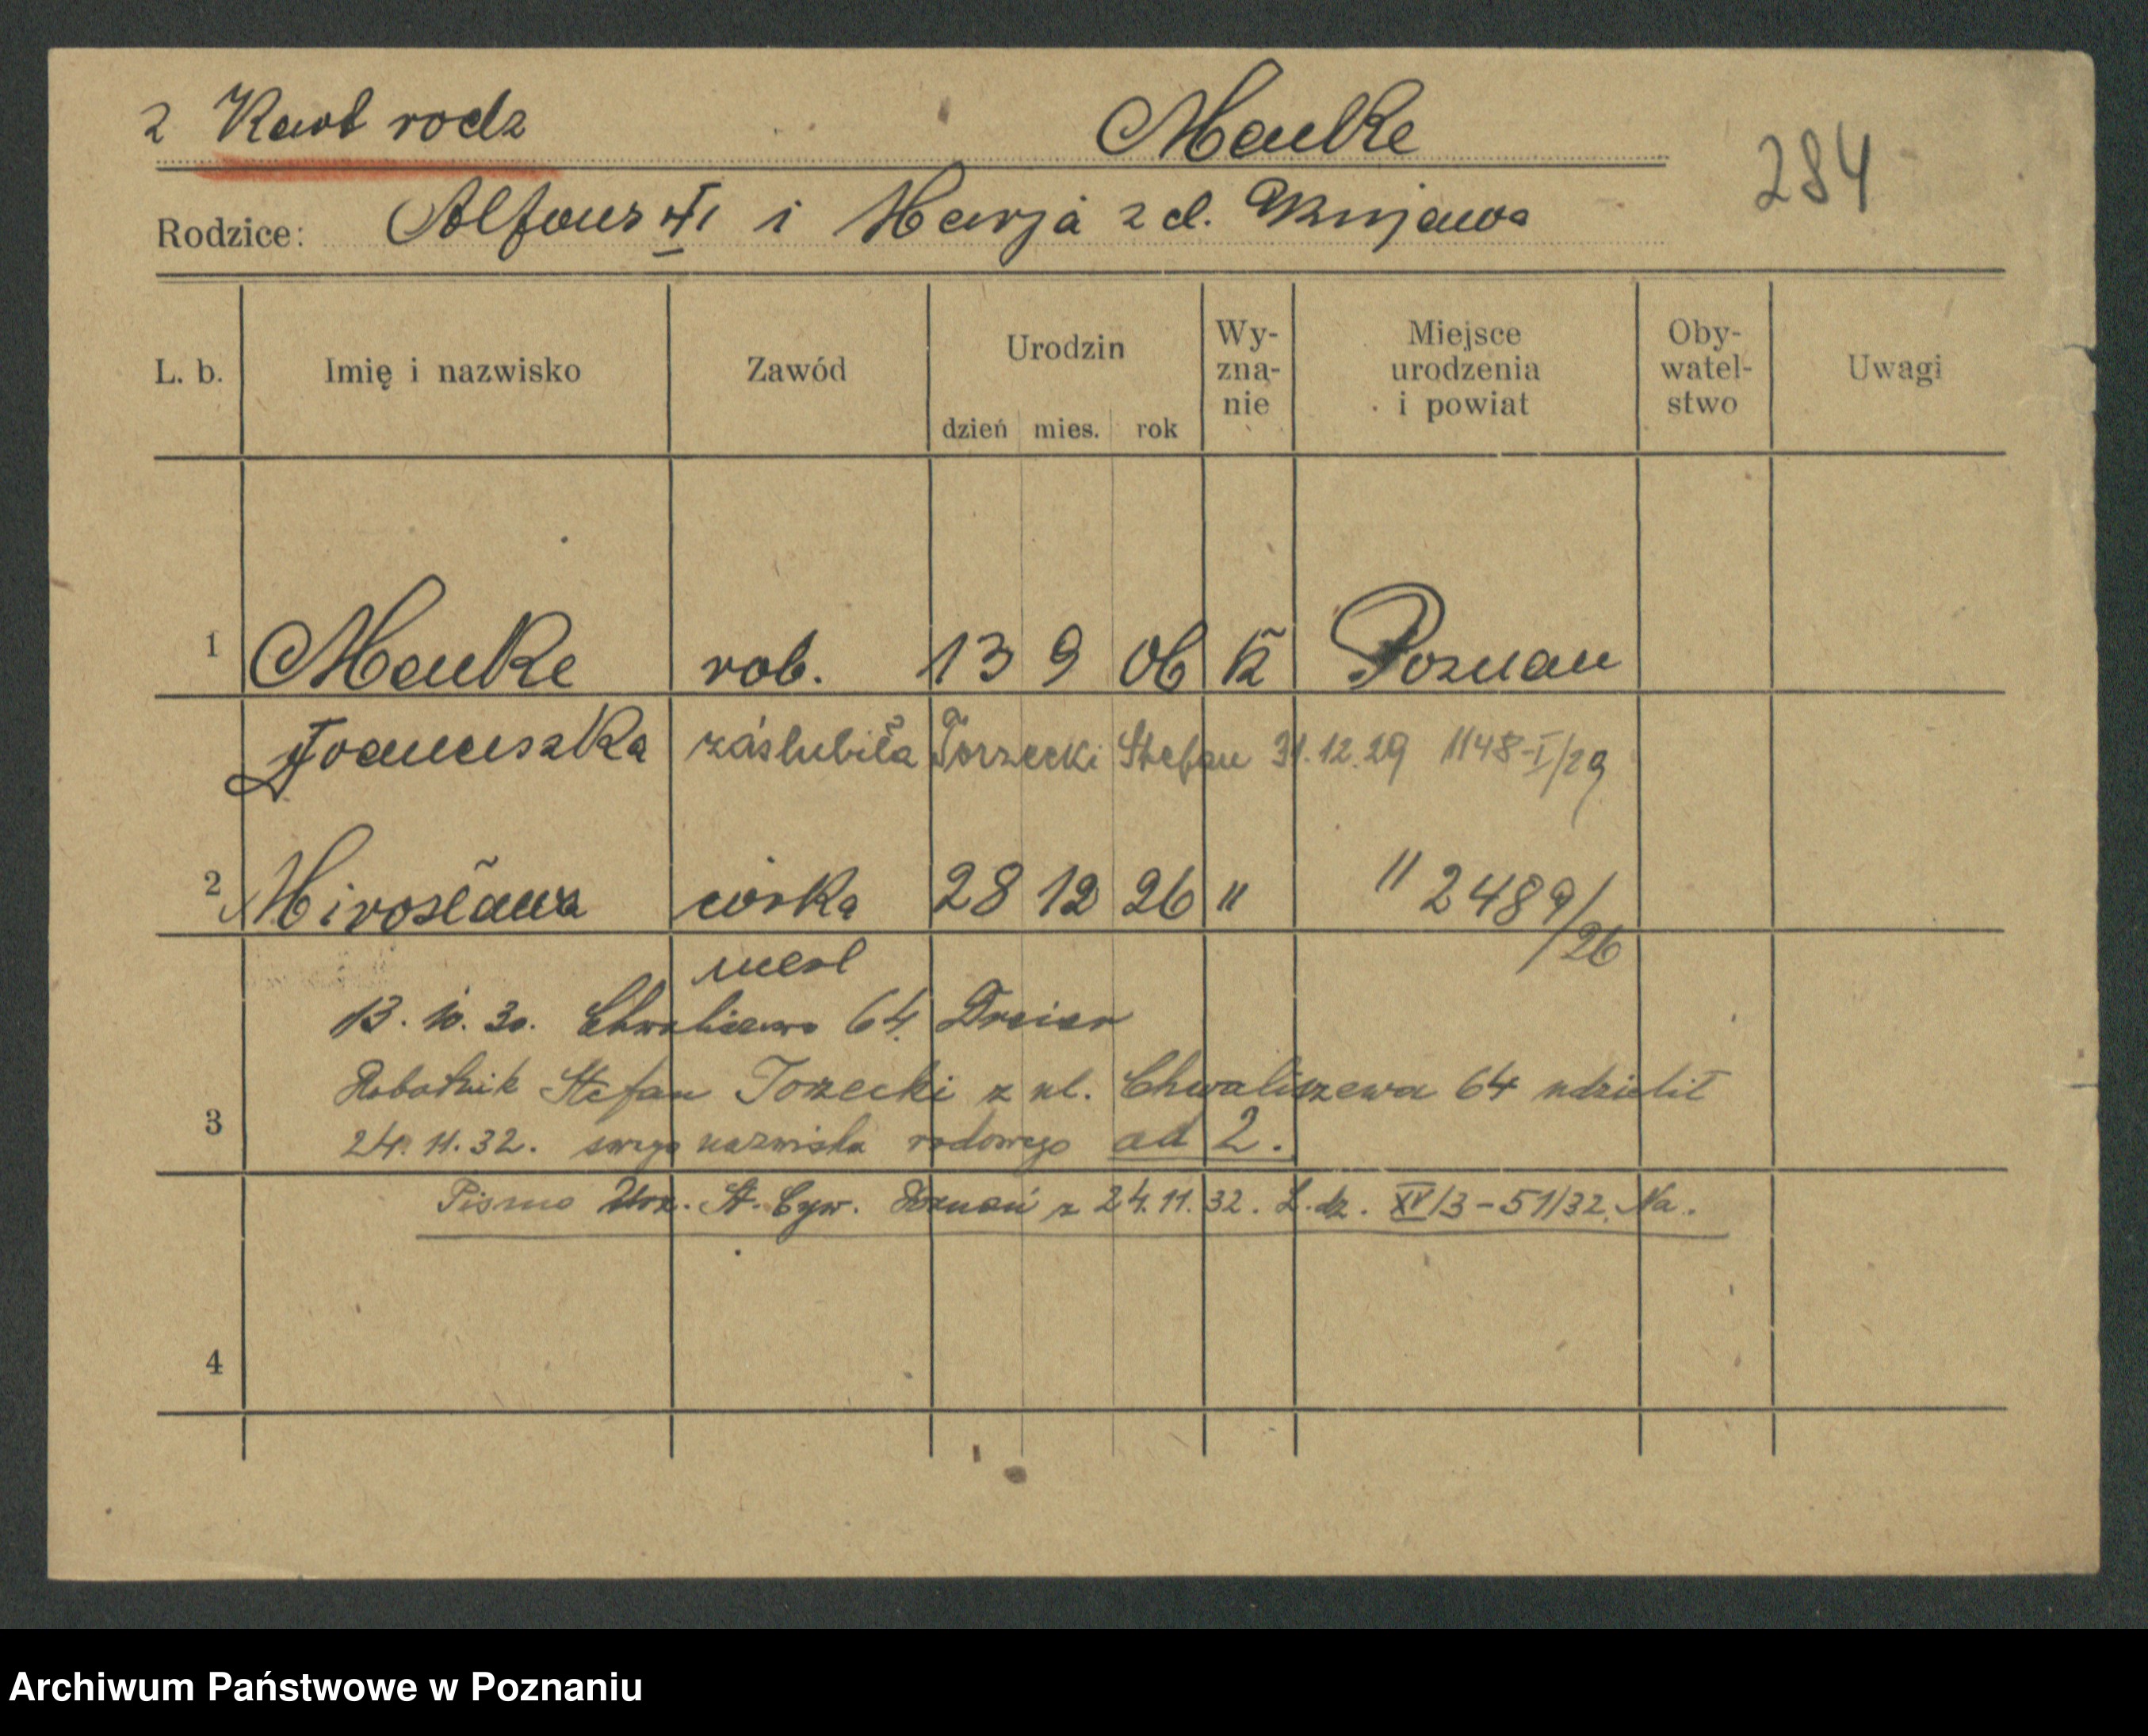 z Kart rodz Manke
284
Rodzice: Alfons i Marja z d. Kujawa
L. b. Imię i nazwisko Zawód Urodzin dzień mies. rok Wy-zna-nie Miejsce urodzenia i powiat Oby-watel-stwo Uwagi
1 Manke rob. 13 9 06 K Poznań
Franciszka zaślubiła Torzecki Stefan 31.12.29 1148-I/29
2 Mirosława córka 28 12 26 " " 2489/26
nieśl
13. 10. 30. Chwaliszewo 64
Robotnik Stefan Torzecki z ul. Chwaliszewa 64 udzielił
3 24. 11. 32. swego nazwiska rodowego ad 2.
Pismo Urz. St. Cyw. Poznań z 24.11.32. L.dz. XV/3-51/32. Na.
4
Archiwum Państwowe w Poznaniu